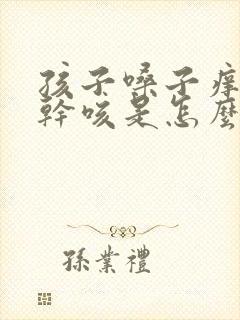 孩子嗓子痒
幹咳是怎麽
孫業禮